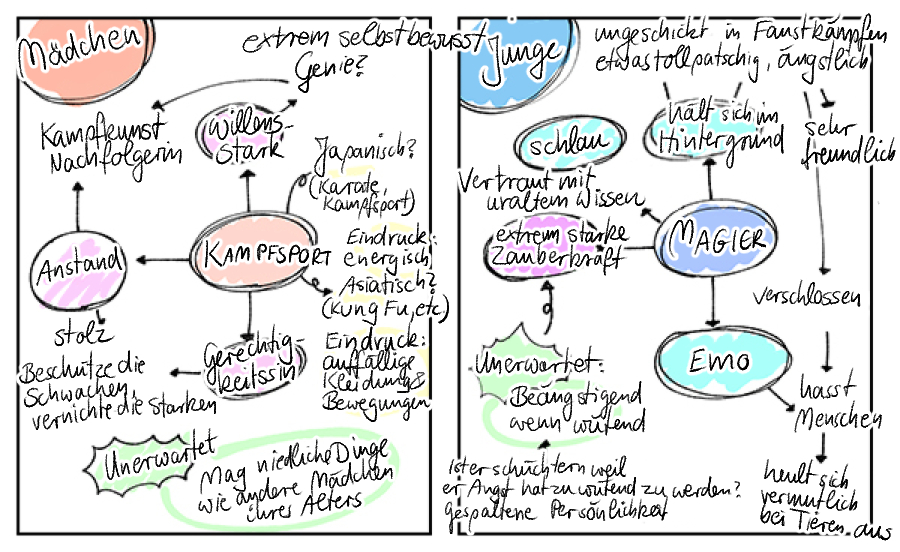 Mädchen
extrem selbstbewusst
Genie?
Kampfkunst
Nachfolgerin
Willens-
stark
Japanisch?
(Karade,
Kampfsport)
Anstand
KAMPFSPORT
Eindruck:
energisch
Asiatisch?
(Kung Fu, etc.)
stolz
Beschütze die
Schwachen,
vernichte die Starken
Gerechtig-
keitssin
Eindruck:
auffällige
Kleidung &
Bewegungen
Unerwartet
Mag niedliche Dinge
wie andere Mädchen
ihres Alters
Junge
ungeschickt in Faustkämpfen
etwas tollpatschig, ängstlich
schlau
hält sich im
Hintergrund
sehr
freundlich
Vertraut mit
uraltem Wissen
extrem starke
Zauberkraft
MAGIER
verschlossen
Emo
Unerwartet:
Beängstigend
wenn wütend
hasst
Menschen
Ist er schüchtern weil
er Angst hat zu wütend zu werden?
gespaltene Persönlichkeit
heult sich
vermutlich
bei Tieren aus